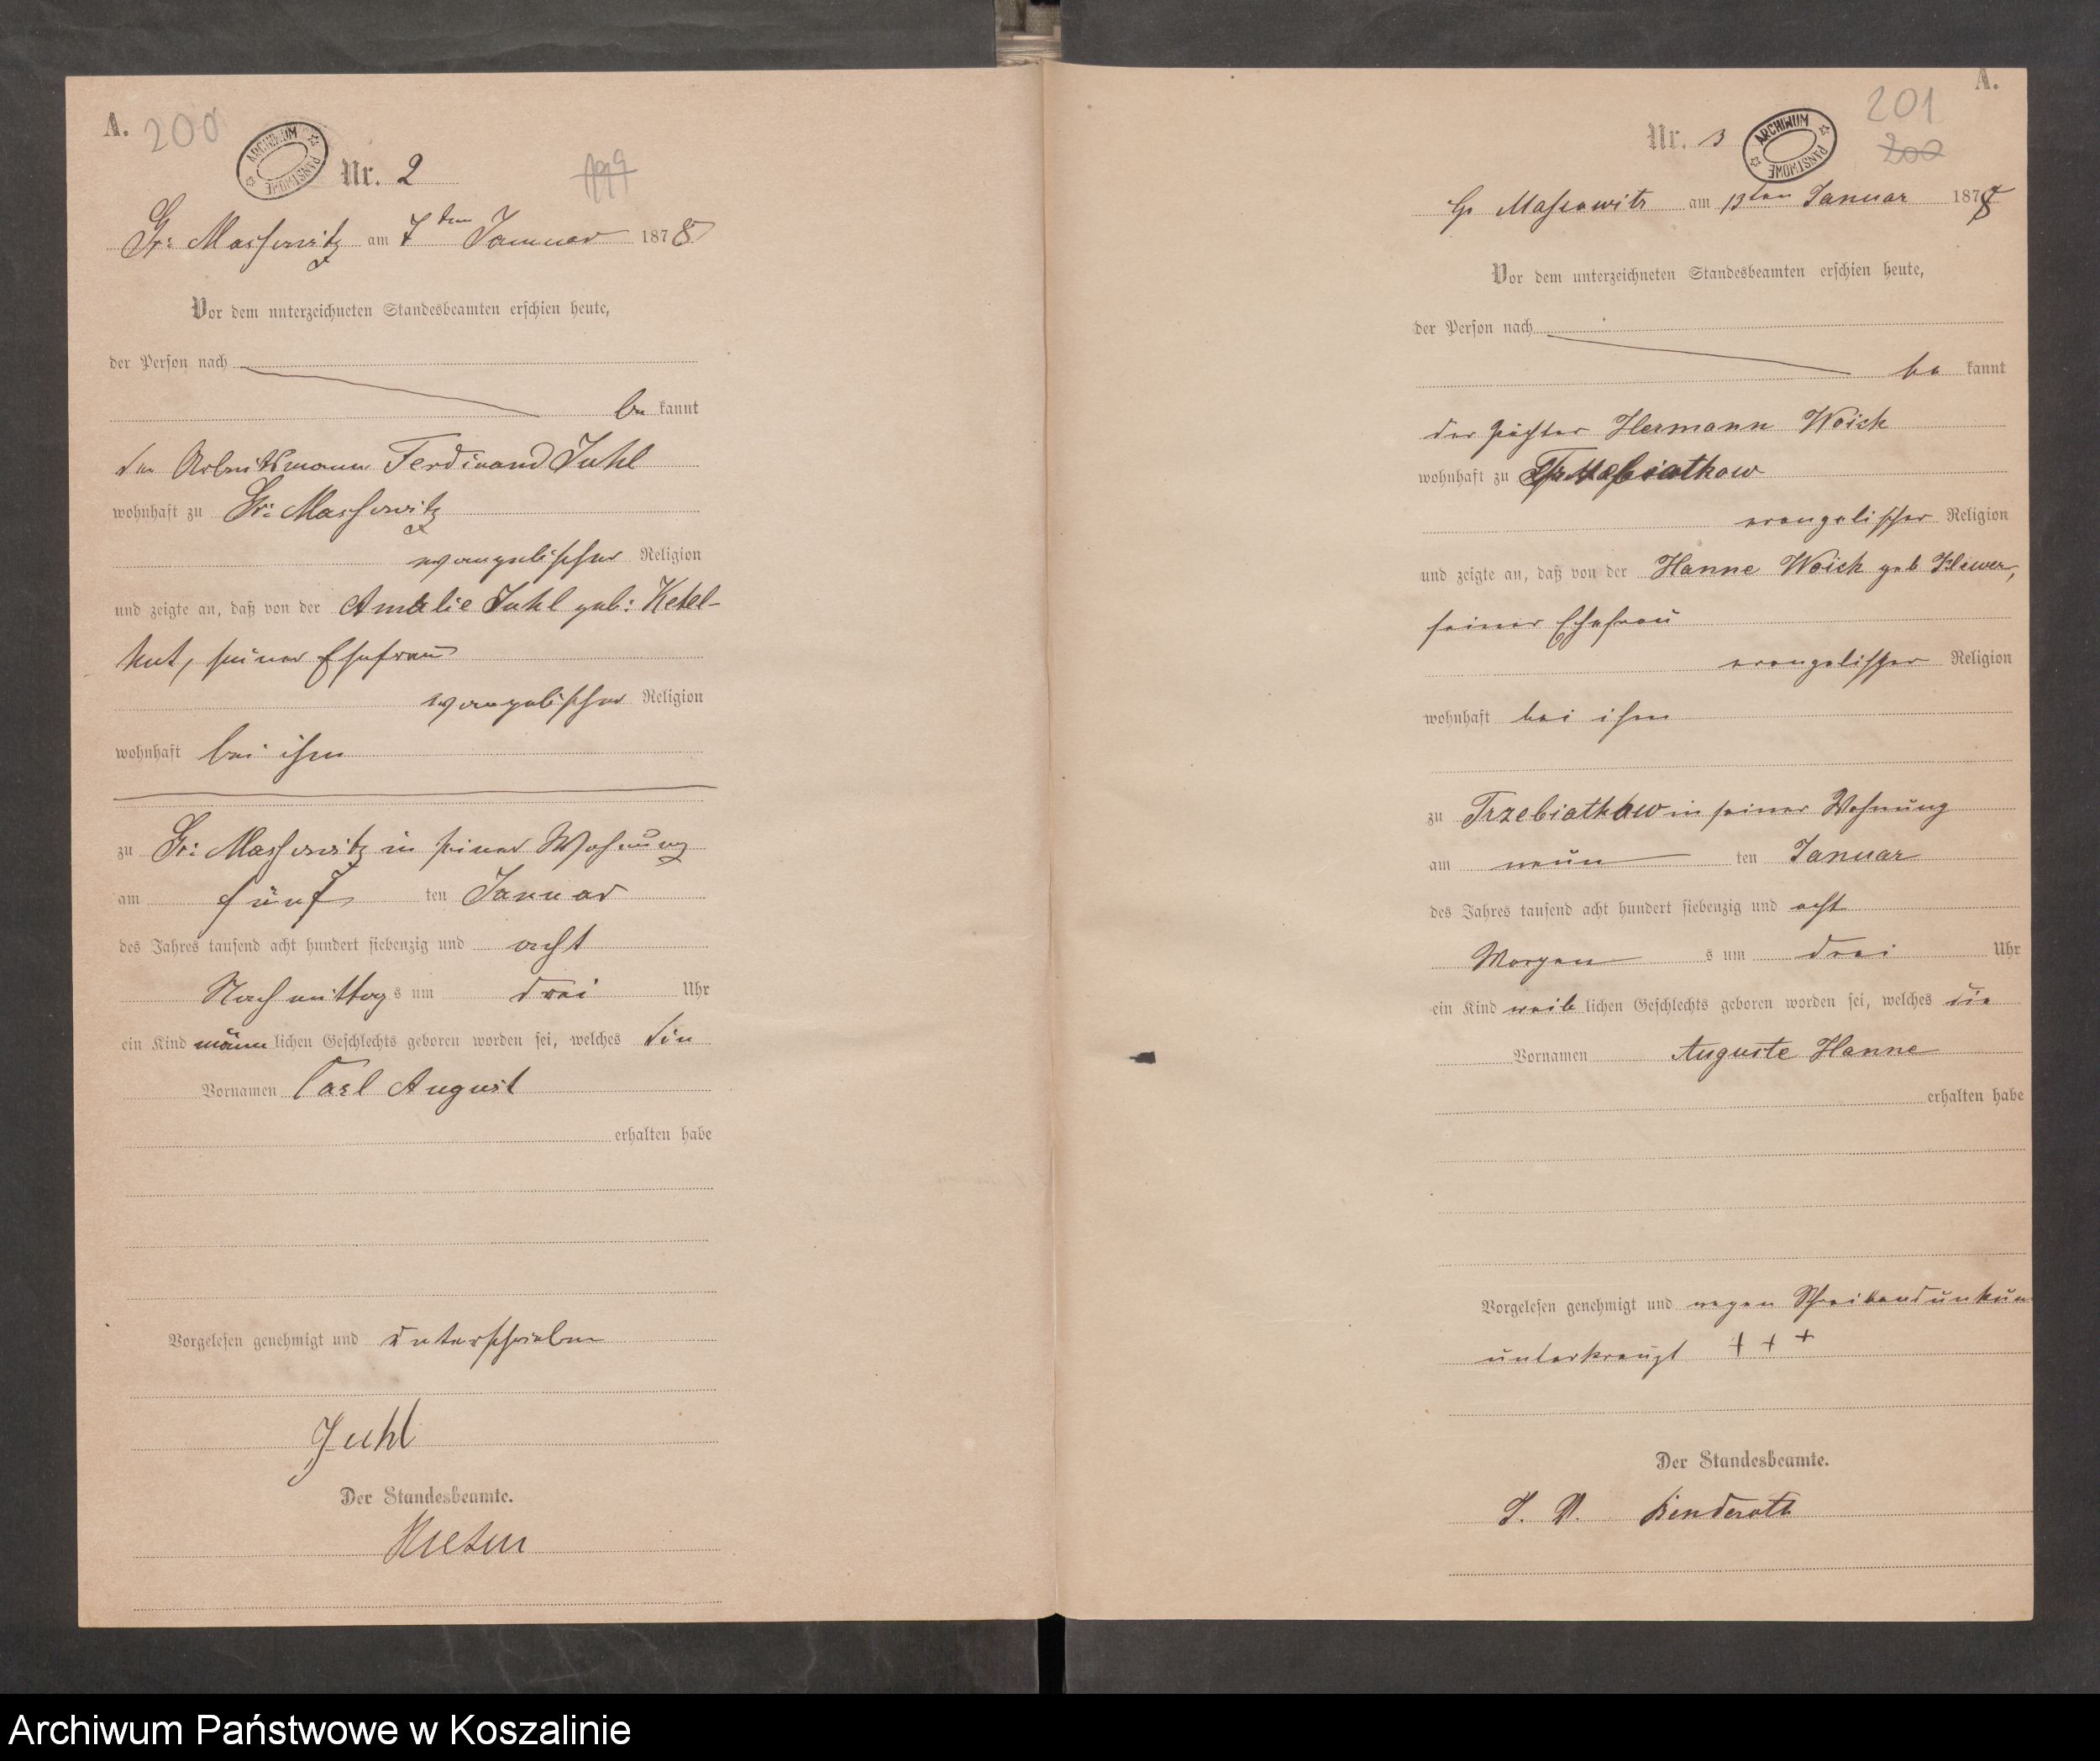 A. 200
ARCHIWUM PAŃSTWOWE
Nr. 2
199
Gr: Massowitz am 7ten Januar 1878
Vor dem unterzeichneten Standesbeamten erschien heute,
der Person nach
be kannt
der Arbeitsmann Ferdinand Juhl
wohnhaft zu Gr: Massowitz
evangelischer Religion
und zeigte an, daß von der Amalie Juhl geb: Ketel-
hut, seiner Ehefrau
evangelischer Religion
wohnhaft bei ihm
zu Gr: Massowitz in seiner Wohnung
am fünf ten Januar
des Jahres tausend acht hundert siebenzig und acht
Nachmittag s um drei Uhr
ein Kind männ lichen Geschlechts geboren worden sei, welches die
Vornamen Carl August
erhalten habe
Vorgelesen genehmigt und unterschrieben
Juhl
Der Standesbeamte.
A.
201
200
Nr. 3
ARCHIWUM PAŃSTWOWE
Gr Massowitz am 13ten Januar 1878
Vor dem unterzeichneten Standesbeamten erschien heute,
der Person nach
be kannt
der Pächter Hermann Woick
wohnhaft zu Trzebiatkow
evangelischer Religion
und zeigte an, daß von der Hanne Woick geb
seiner Ehefrau
evangelischer Religion
wohnhaft bei ihm
zu Trzebiatkow in seiner Wohnung
am neun ten Januar
des Jahres tausend acht hundert siebenzig und acht
Morgen s um drei Uhr
ein Kind weib lichen Geschlechts geboren worden sei, welches die
Vornamen Auguste Hanne
erhalten habe
Vorgelesen genehmigt und wegen Schreibensunkun
unterkreuzt + + +
Der Standesbeamte.
J. V. Benderoth
Archiwum Państwowe w Koszalinie